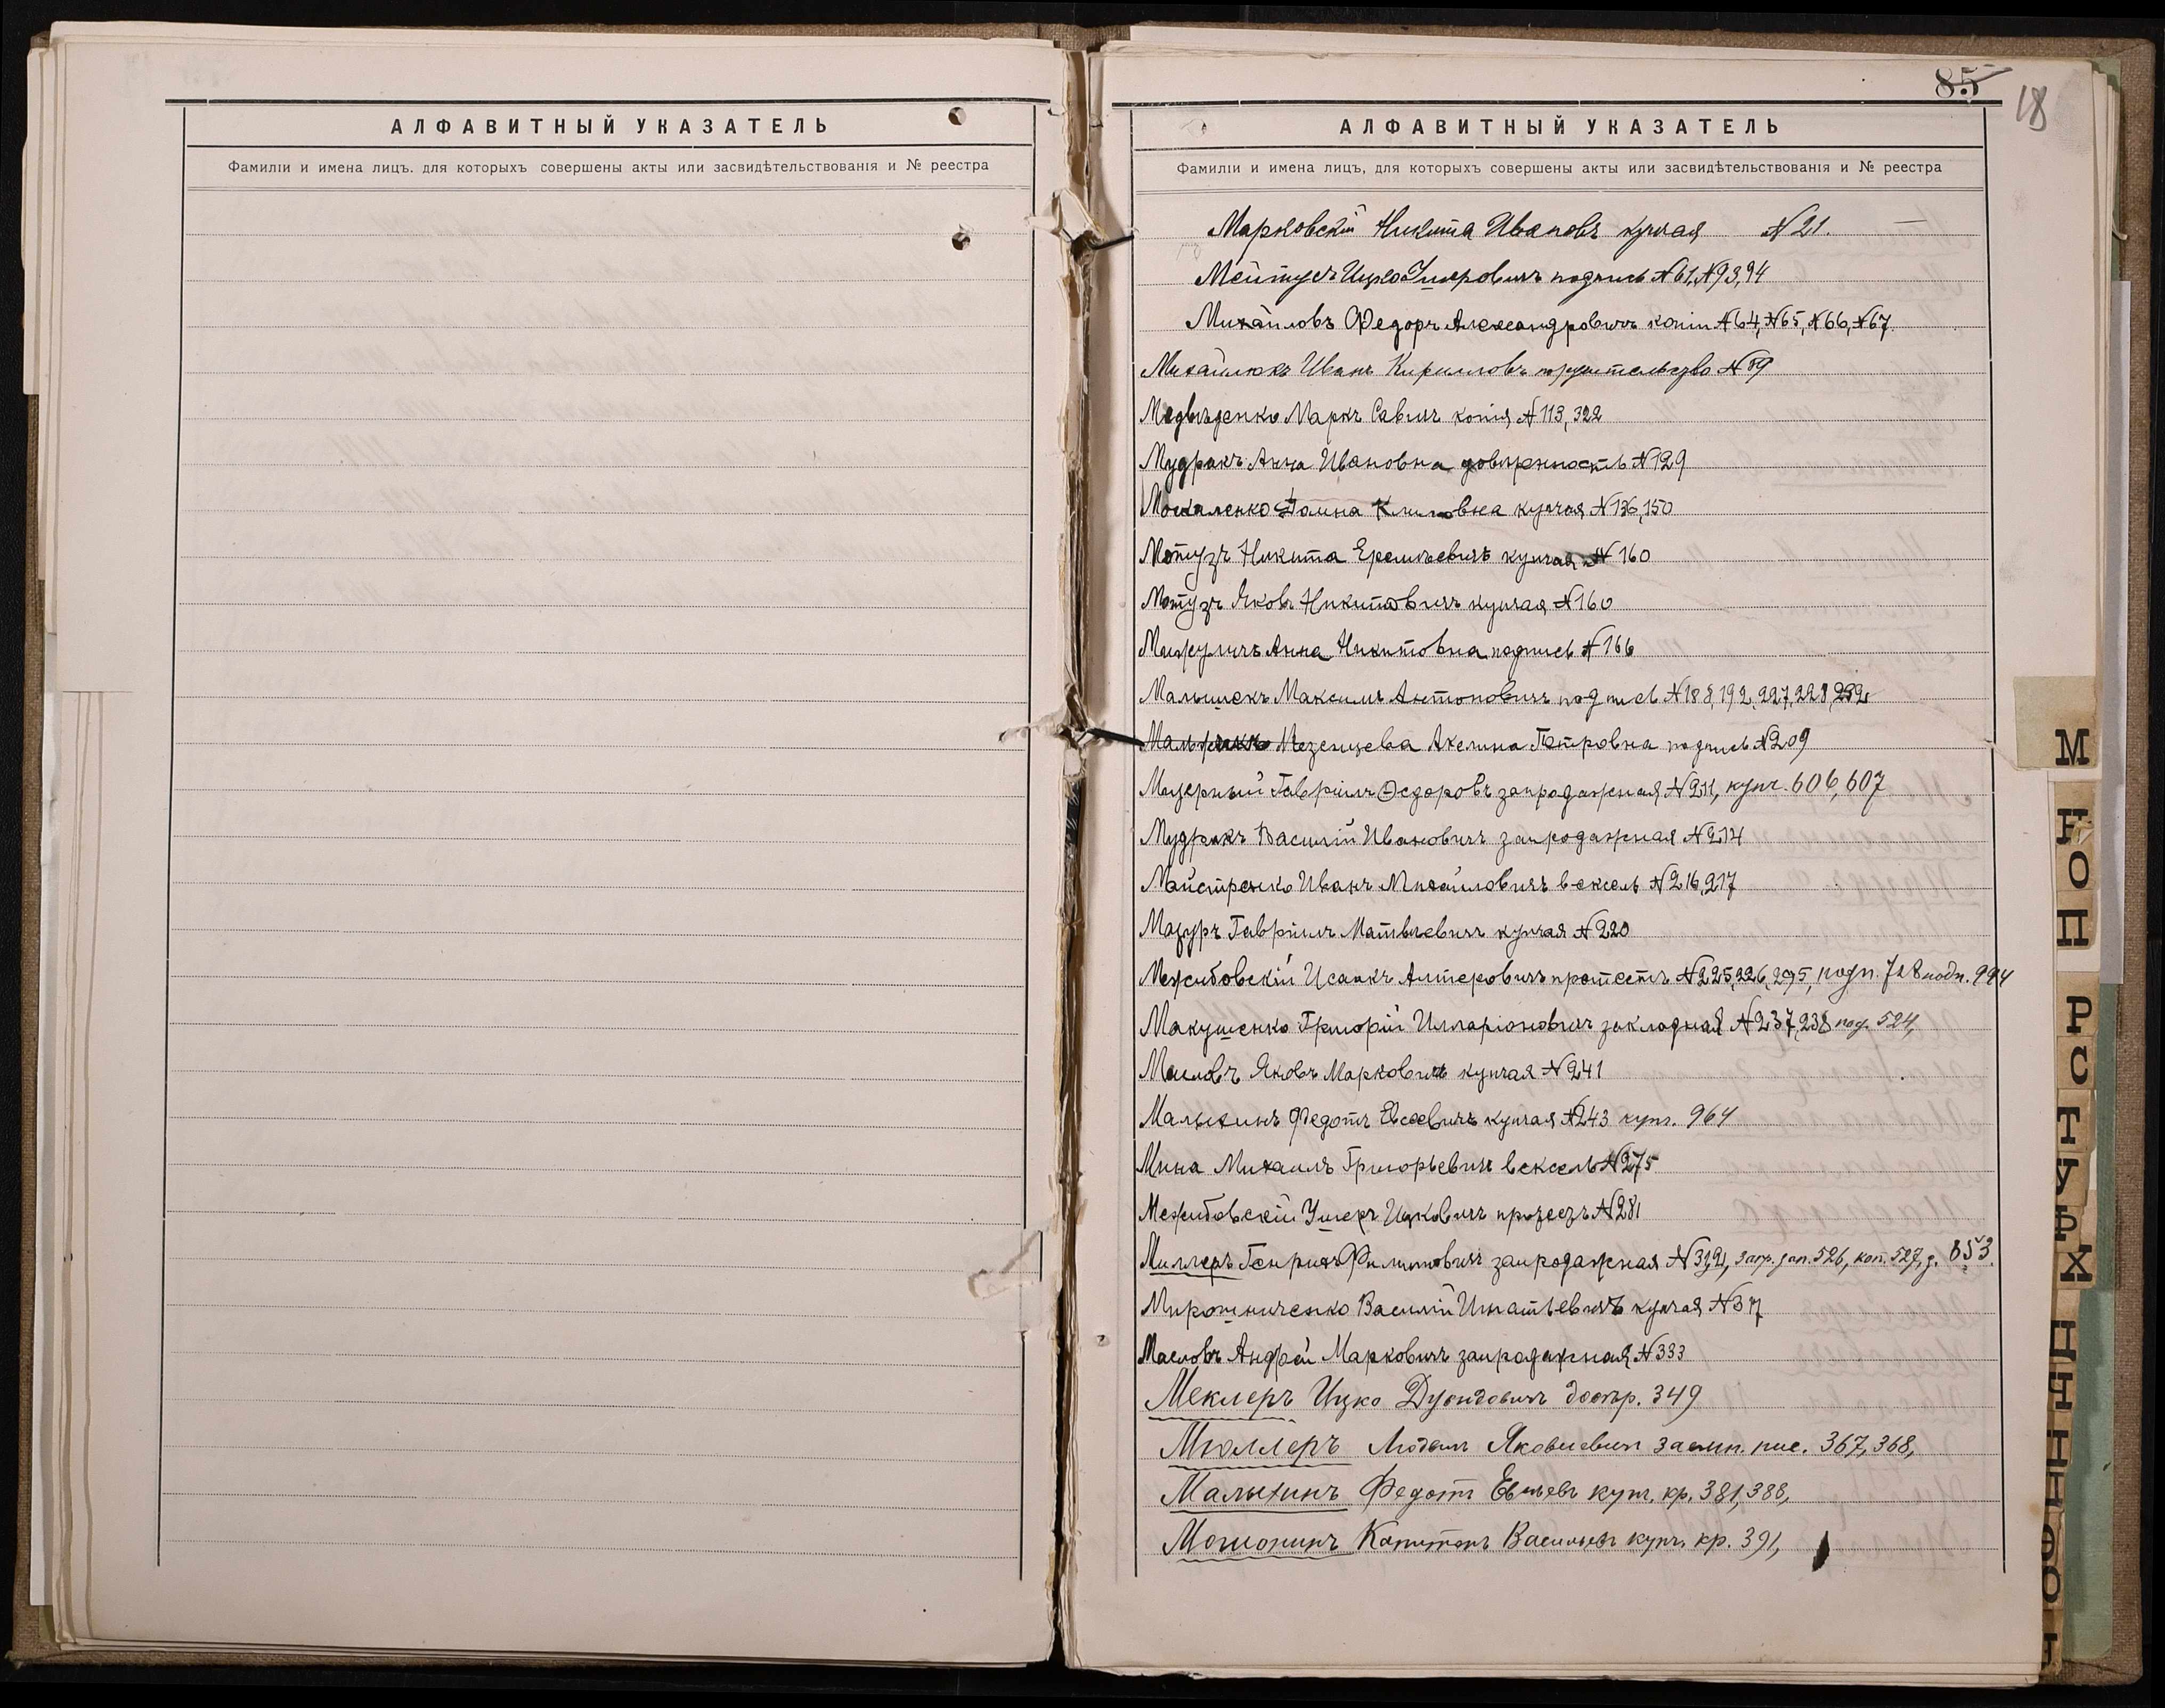 АЛФАВИТНЫЙ УКАЗАТЕЛЬ
Фамиліи и имена лицъ. для которыхъ совершены акты или засвидѣтельствованія и № реестра
85
18
АЛФАВИТНЫЙ УКАЗАТЕЛЬ
Фамиліи и имена лицъ, для которыхъ совершены акты или засвидѣтельствованія и № реестра
Марковскій Никита Ивановъ купчая №21.
Мейтусъ Ицко Умеровичъ подпись №61, №93, 94
Михайловъ Федоръ Александровичъ копіи №64, №65, №66, №67.
Михайлюкъ Иванъ Кирилловъ №89
Медвѣденко Маркъ Савичъ копія №113, 322
Мудракъ Анна Ивановна довѣренность №129
Москаленко Домна Климовна купчая №136, 150
Мотузъ Никита Еремѣевичъ купчая №160
Мотузъ Яковъ Никитовичъ купчая №160
Анна Никитовна подпись №166
Малышекъ Максимъ Антоновичъ подпись №188, 192, 227, 228, 232
Мезенцева Акелина Петровна подпись №209
Мацерный Гавріилъ Ѳедоровъ запродажная №211, купч. 606, 607
Мудракъ Василій Ивановичъ запродажная №214
Майстренко Иванъ Михайловичъ вексель №216, 217
Мазуръ Гавріилъ Матвѣевичъ купчая №220
Межибовскій Исаакъ Аптеровичъ протестъ №225, 226, 295, подп. 728 подп. 994
Макушенко Григорій Илларіоновичъ закладная №237, 238 под. 524,
Масловъ Яковъ Марковичъ купчая №241
Малыхинъ Федотъ Евсеевичъ купчая №243 купч. 964
Мина Михаилъ Григорьевичъ вексель №275
Межибовскій Умеръ Ицковичъ протестъ №281
Миллеръ Генрихъ Филипповичъ запродажная зап. 526, коп. 527, д. 853.
Мирошниченко Василій Игнатьевичъ купчая №317
Масловъ Андрей Марковичъ запродажная №333
Меклеръ Ицко Дувидовичъ довѣр. 349
Мюллеръ Яковлевичъ 367, 368,
Малыхинъ Федотъ Евсѣевъ купч. кр. 381, 388,
Капитонъ Васильевъ купч. кр. 391,
М
Н
О
П
Р
С
Т
У
Ф
Х